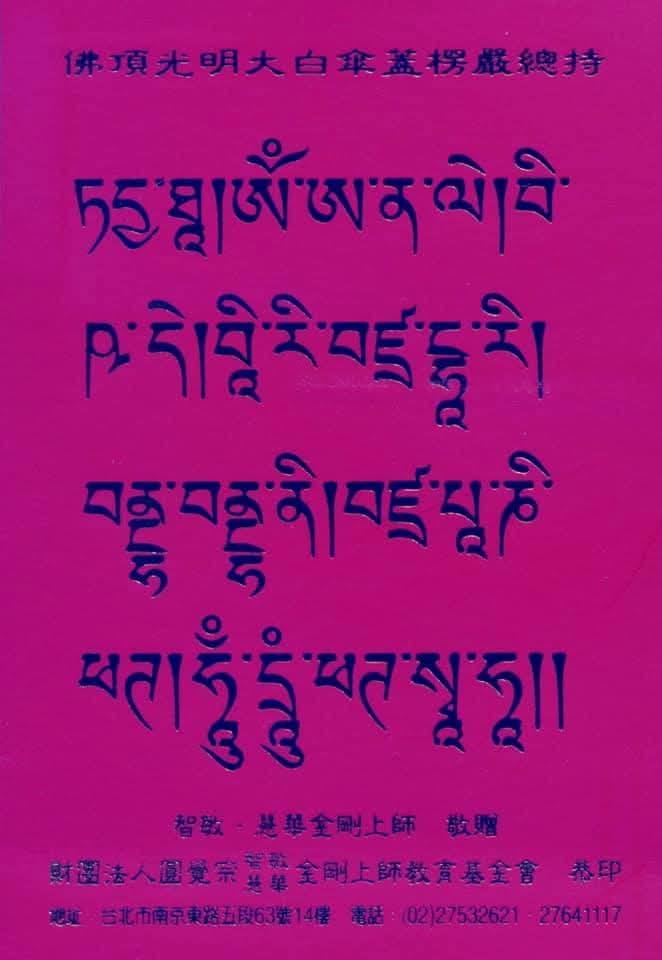 佛頂光明大白傘蓋楞嚴總持
ཏདྱ་ཐཱ།ཨོཾ་ཨ་ན་ལེ།བི་
ཤ་དེ།བཱི་རི་བཛྲ་དྷཱ་རི།
བནྡྷ་བནྡྷ་ནི།བཛྲ་པཱ་ཎི་
ཕཊ།ཧཱུྃ་དྲཱུཾ་ཕཊ་སྭཱ་ཧཱ།།
智敏‧慧華金剛上師 敬贈
財團法人圓覺宗智敏慧華金剛上師教育基金會 恭印
地址 台北市南京東路五段63號14樓 電話：(02)27532621‧27641117